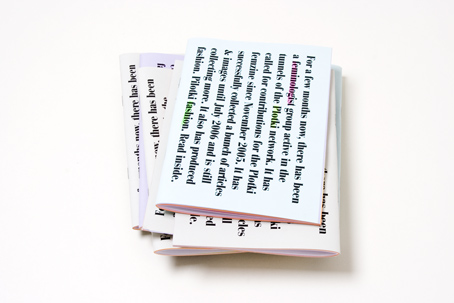 For a few months now, there has been
a feminologist group active in the
tunnels of the Plotki network. It has
called for contributions for the Plotki
femzine since November 2005. It has
successfully collected a bunch of articles
& images until July 2006 and is still
collecting more. It also has produced
fashion. Plotki fashion. Read inside.
months now, there has been
now, there has been
has been